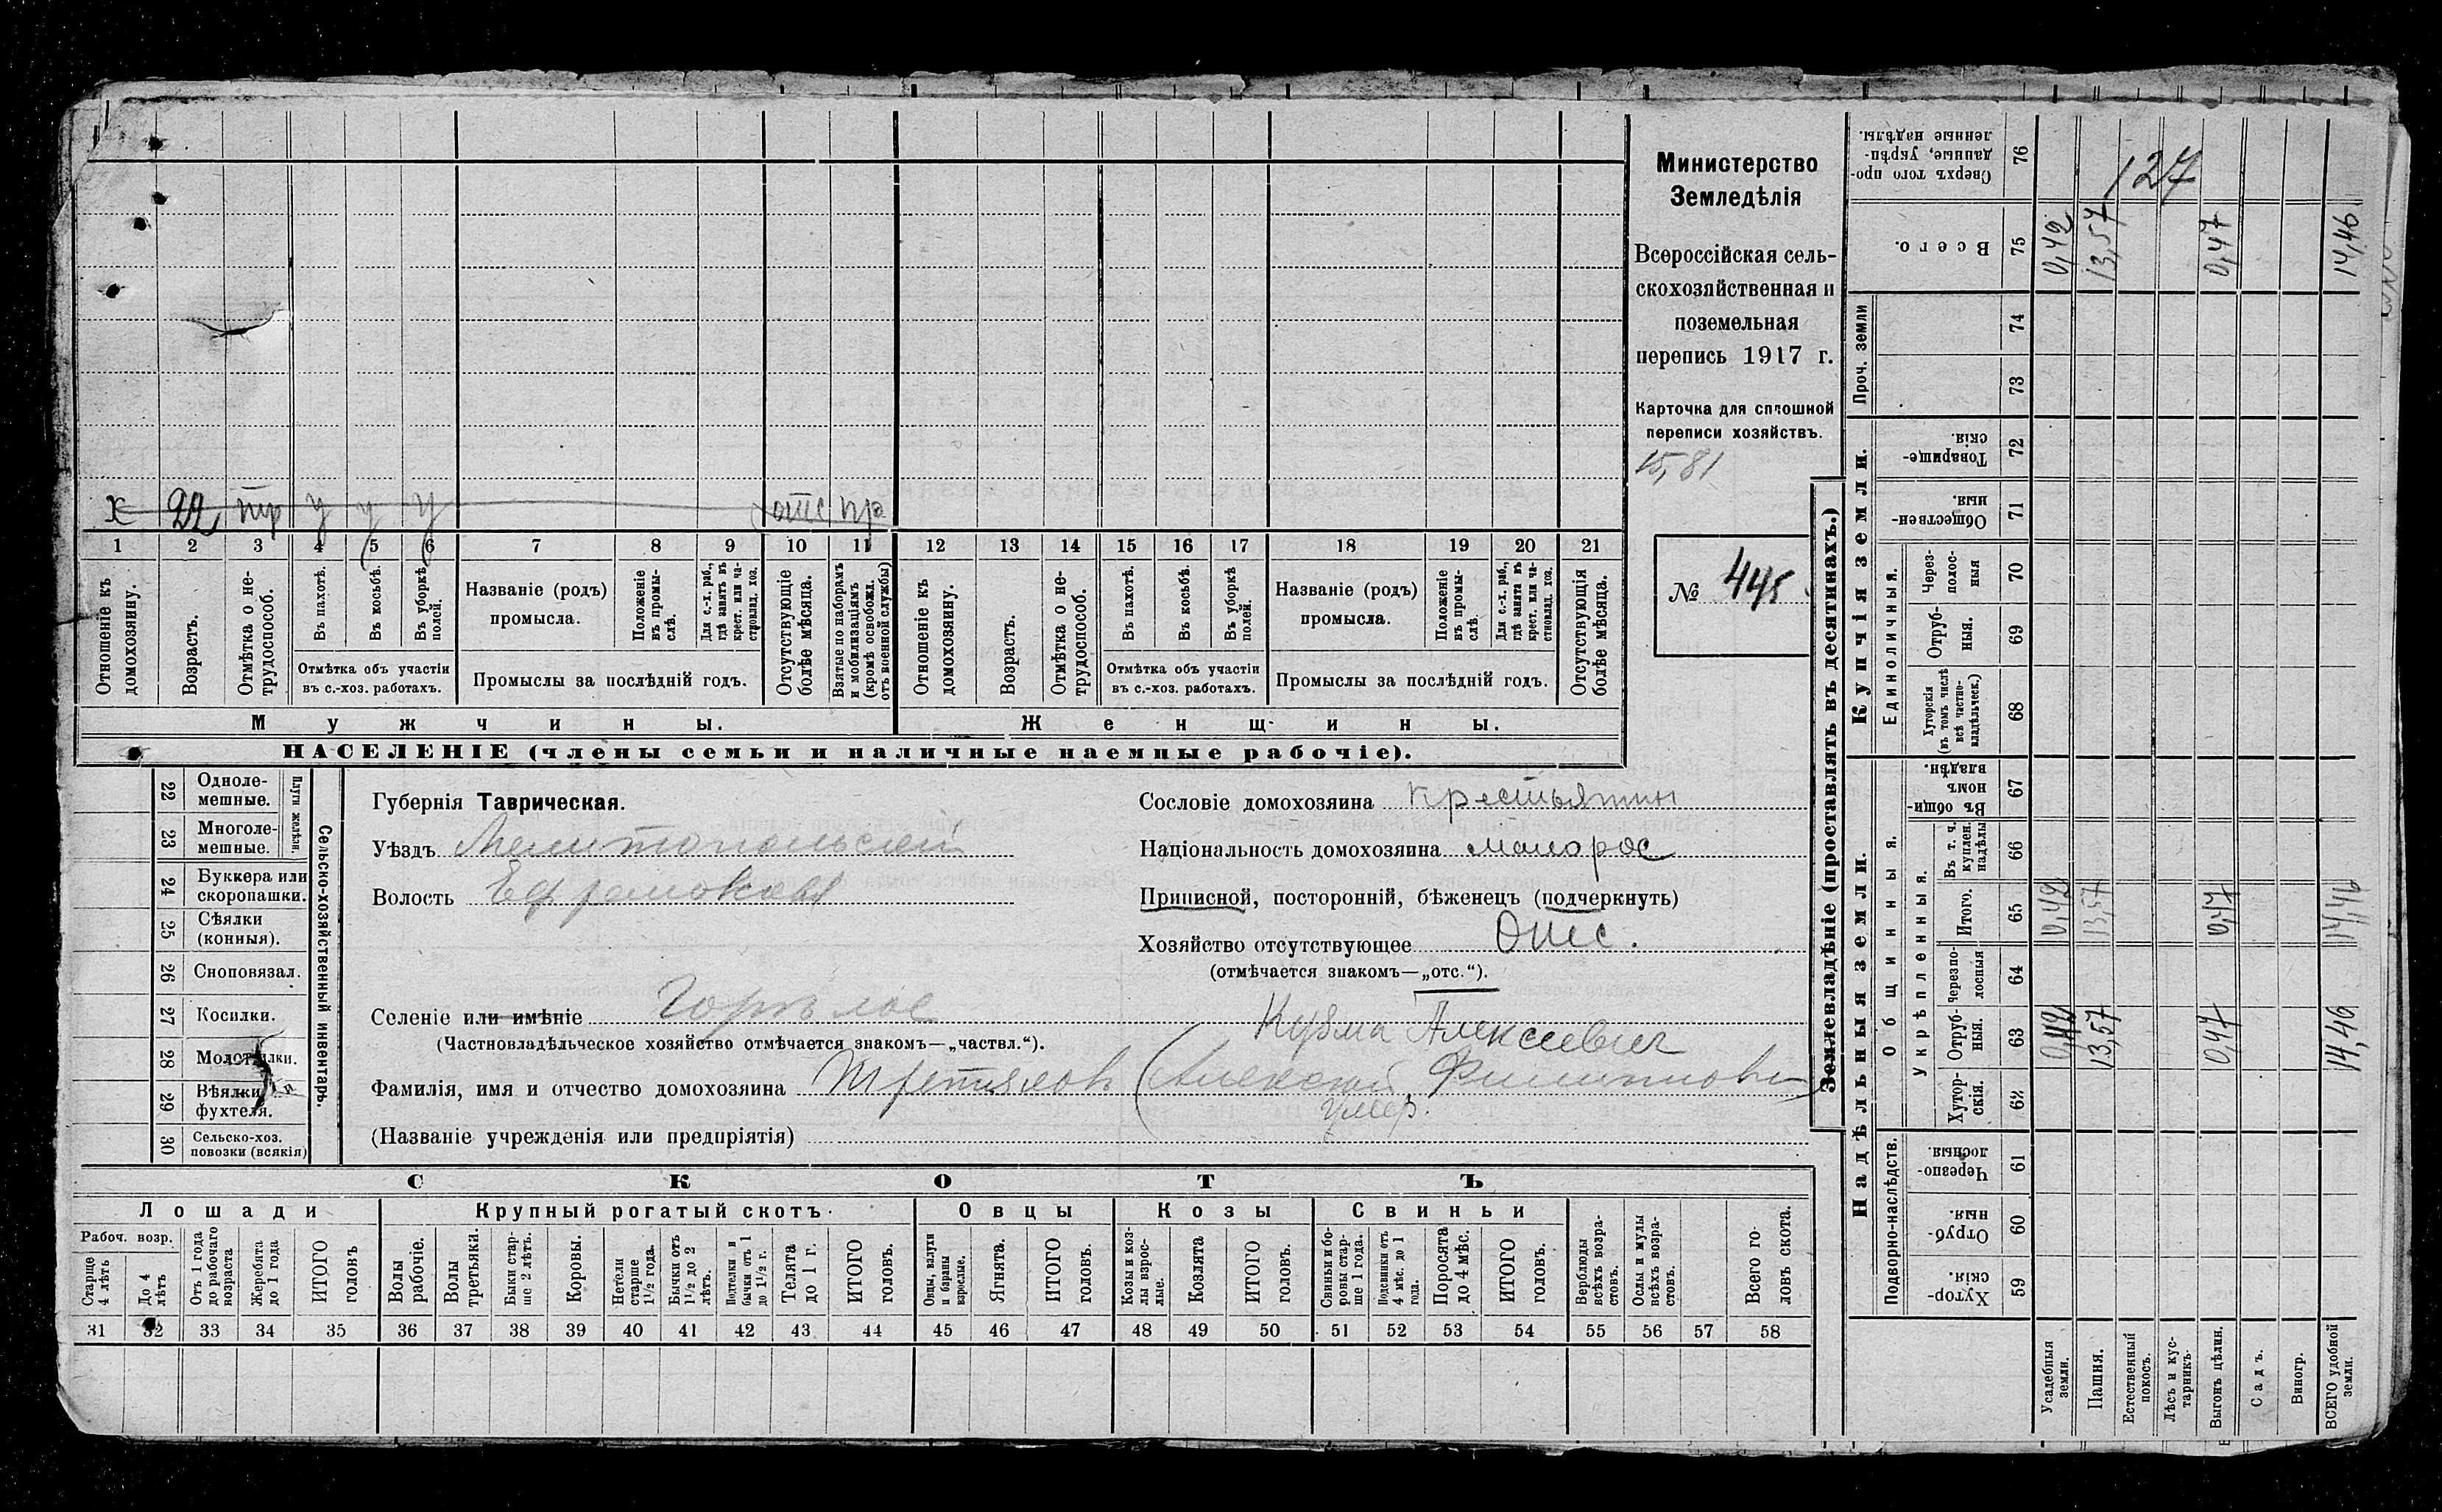 Министерство
Земледѣлія
Всероссійская сель-
скохозяйственная и
поземельная
перепись 1917 г.
Карточка для сплошной
переписи хозяйствъ.
15,81
№ 445
х 22 тр у у у отс пр
1 2 3 4 5 6 7 8 9 10 11 12 13 14 15 16 17 18 19 20 21
Отношеніе къ домохозяину.
Возрастъ.
Отмѣтка о не-трудоспособ.
Въ пахотѣ.
Въ косьбѣ.
Въ уборкѣ полей.
Отмѣтка объ участіи
въ с.-хоз. работахъ.
Названіе (родъ)
промысла.
Положеніе въ промы-слѣ.
Для с.-х. раб., гдѣ занятъ въ крест. или ча-стновлад. хоз.
Промыслы за послѣдній годъ.
Отсутствующіе болѣе мѣсяца.
Взятые по наборамъ и мобилизаціямъ (кромѣ освобожд. отъ военной службы)
Отношеніе къ домохозяину.
Возрастъ.
Отмѣтка о не-трудоспособ.
Въ пахотѣ.
Въ косьбѣ.
Въ уборкѣ полей.
Отмѣтка объ участіи
въ с.-хоз. работахъ.
Названіе (родъ)
промысла.
Положеніе въ промы-слѣ.
Для с.-х. раб., гдѣ занята въ крест. или ча-стновлад. хоз.
Промыслы за послѣдній годъ.
Отсутствующія болѣе мѣсяца.
Мужчины.
Женщины.
НАСЕЛЕНІЕ (члены семьи и наличные наемные рабочіе).
22 Одноле-мешные.
23 Многоле-мешные.
Плуги желѣзн.
24 Буккера или скоропашки.
25 Сѣялки (конныя).
26 Сноповязал.
27 Косилки.
28 Молотилки.
29 Вѣялки, фухтеля.
30 Сельско-хоз. повозки (всякія)
Сельско-хозяйственный инвентарь.
Губернія Таврическая.
Уѣздъ Мелитопольскій
Волость Ефремовская
Селеніе или имѣніе Горѣлое
(Частновладѣльческое хозяйство отмѣчается знакомъ—„частвл.“).
Кузма Алексеевич
Фамилія, имя и отчество домохозяина Третяков (Алексей Филиппович
умер.
(Названіе учрежденія или предпріятія)
Сословіе домохозяина крестьянин
Національность домохозяина малорос
Приписной, посторонній, бѣженецъ (подчеркнуть)
Хозяйство отсутствующее Отс.
(отмѣчается знакомъ—„отс.“).
СКОТЪ
Лошади
Крупный рогатый скотъ.
Овцы
Козы
Свиньи
Рабоч. возр.
Старше 4 лѣтъ
До 4 лѣтъ
Отъ 1 года до рабочаго возраста
Жеребята до 1 года
ИТОГО головъ
Волы рабочіе.
Волы третьяки.
Быки стар-ше 2 лѣтъ.
Коровы.
Нетели старше 1½ года.
Бычки отъ 1½ до 2 лѣтъ.
Подтелки и бычки отъ 1 до 1½ г.
Телята до 1 г.
ИТОГО головъ.
Овцы, валухи и бараны взрослые.
Ягнята.
ИТОГО головъ.
Козы и коз-лы взрос-лые.
Козлята
ИТОГО головъ.
Свиньи и бо-ровы стар-ше 1 года.
Подсвинки отъ 4 мѣс. до 1 года.
Поросята до 4 мѣс.
ИТОГО головъ.
Верблюды всѣхъ возра-стовъ.
Ослы и мулы всѣхъ возра-стовъ.
Всего го-ловъ скота.
31 32 33 34 35 36 37 38 39 40 41 42 43 44 45 46 47 48 49 50 51 52 53 54 55 56 57 58
Землевладѣніе (проставлять въ десятинахъ.)
Надѣльныя земли.
Купчія земли.
Проч. земли
Подворно-наслѣдств.
Общинныя.
Укрѣпленныя.
Единоличныя.
Хутор-скія. 59
Отруб-ныя. 60
Черезпо-лосныя. 61
Хутор-скія. 62
Отруб-ныя. 63
Черезпо-лосныя 64
Итого. 65
Въ т. ч. куплен. надѣлы 66
Въ общин-номъ владѣн. 67
Хуторскія (въ томъ числѣ всѣ частно-владѣльческ.) 68
Отруб-ныя. 69
Через-полос-ныя 70
Обществен-ныя. 71
Товарище-скія. 72
73
74
Всего. 75
Сверхъ того про-данные, укрѣп-ленные надѣлы. 76
127
Усадебныя земли. 0,42 0,42 0,42
Пашня. 13,57 13,57 13,57
Естественный покосъ.
Лѣсъ и кус-тарникъ.
Выгонъ цѣлин. 0,47 0,47 0,47
Садъ.
Виногр.
ВСЕГО удобной земли. 14,46 14,46 14,46